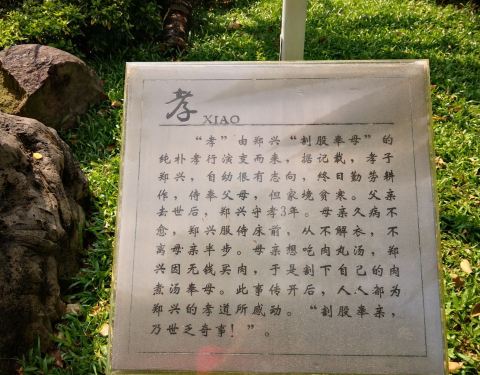 孝
XIAO
“孝”由郑兴“割股奉母”的
纯朴孝行演变而来，据记载，孝子
郑兴，自幼很有志向，终日勤劳耕
作，侍奉父母，但家境贫寒。父亲
去世后，郑兴守孝3年。母亲久病不
愈，郑兴服侍床前，从不解衣，不
离母亲半步。母亲想吃肉丸汤，郑
兴因无钱买肉，于是割下自己的肉
煮汤奉母。此事传开后，人人都为
郑兴的孝道所感动。“割股奉亲，
乃世乏奇事！”。